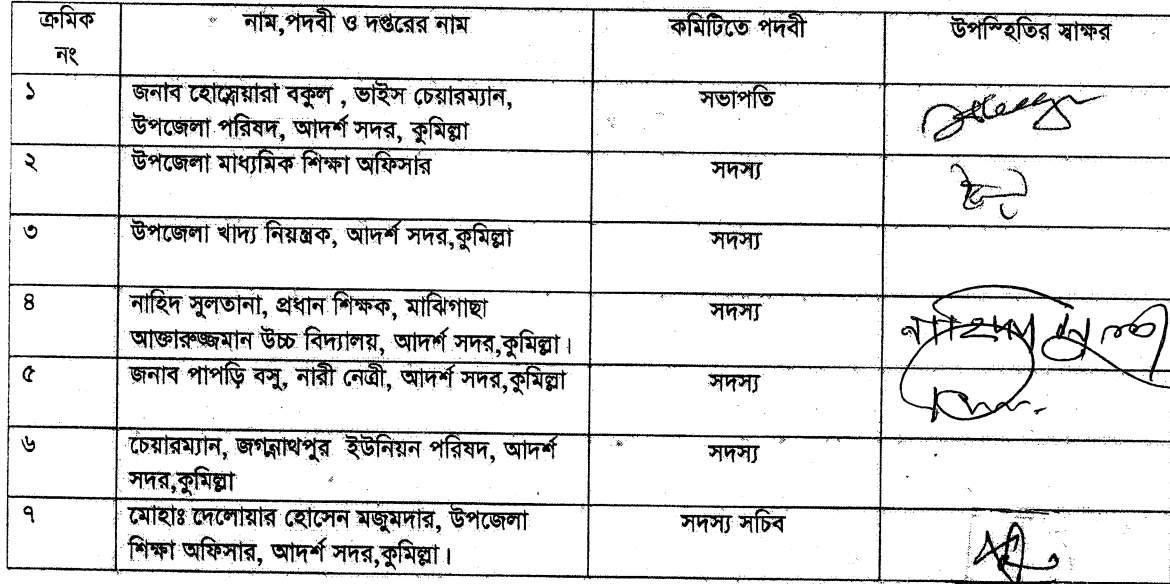 ক্রমিক নং	নাম,পদবী ও দপ্তরের নাম	কমিটিতে পদবী	উপস্হিতির স্বাক্ষর
১	জনাব হোস্নেয়ারা বকুল , ভাইস চেয়ারম্যান,	সভাপতি
উপজেলা পরিষদ, আদর্শ সদর, কুমিল্লা
২	উপজেলা মাধ্যমিক শিক্ষা অফিসার	সদস্য
৩	উপজেলা খাদ্য নিয়ন্ত্রক, আদর্শ সদর,কুমিল্লা	সদস্য
৪	নাহিদ সুলতানা, প্রধান শিক্ষক, মাঝিগাছা	সদস্য
আক্তারুজ্জমান উচ্চ বিদ্যালয়, আদর্শ সদর,কুমিল্লা।
৫	জনাব পাপড়ি বসু, নারী নেত্রী, আদর্শ সদর,কুমিল্লা	সদস্য
৬	চেয়ারম্যান, জগন্নাথপুর ইউনিয়ন পরিষদ, আদর্শ	সদস্য
সদর,কুমিল্লা
৭	মোহাঃ দেলোয়ার হোসেন মজুমদার, উপজেলা	সদস্য সচিব
শিক্ষা অফিসার, আদর্শ সদর,কুমিল্লা।